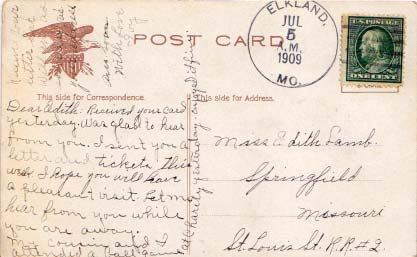 POST CARD
ELKLAND,
JUL
5
A.M.
1909
MO.
U.S. POSTAGE
ONE CENT
This side for Correspondence.
This side for Address.
Dear Edith: Received your card
yesterday. Was glad to hear
from you. I sent you a
letter and tickets this
week. I hope you will have
a pleasant visit. Let me
hear from you while
you are away.
My cousin and I
attended a ball game
at Charity yesterday
Miss Edith Lamb.
Springfield
Missouri
St. Louis St. R.R. #2.